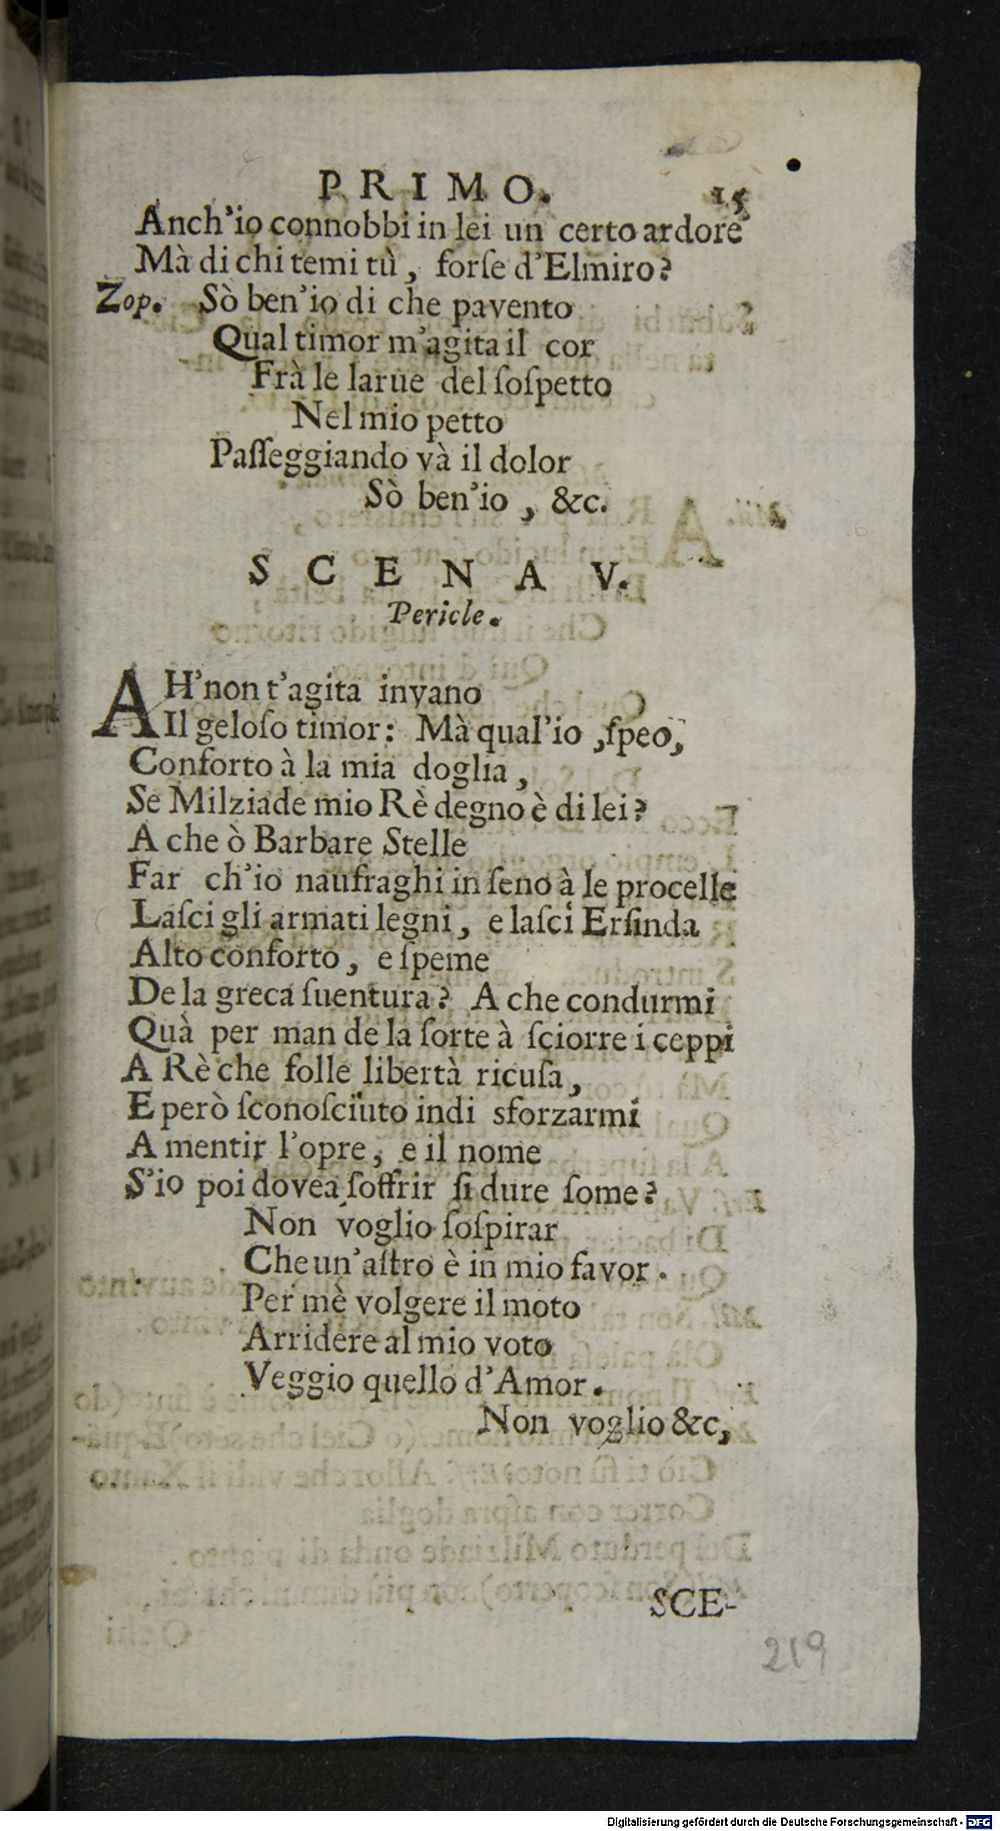 PRIMO. 15
Anch'io connobbi in lei un certo ardore
Mà di chi temi tù, forſe d'Elmiro?
Zop. Sò ben'io di che pavento
Qual timor m'agita il cor
Frà le larue del ſoſpetto
Nel mio petto
Paſſeggiando và il dolor
Sò ben'io, &c.
SCENA V.
Pericle.
AH'non t'agita invano
Il geloſo timor: Mà qual'io ,ſpeo,
Conforto à la mia doglia,
Se Milziade mio Rè degno è di lei?
A che ò Barbare Stelle
Far ch'io naufraghi in ſeno à le procelle
Laſci gli armati legni, e laſci Erſinda
Alto conforto, e ſpeme
De la greca ſuentura? A che condurmi
Quà per man de la ſorte à ſciorre i ceppi
A Rè che folle libertà ricuſa,
E però ſconoſciuto indi sforzarmi
A mentir l'opre, e il nome
S'io poi dovea ſoffrir ſi dure ſome?
Non voglio ſoſpirar
Che un'aſtro è in mio favor.
Per mè volgere il moto
Arridere al mio voto
Veggio quello d'Amor.
Non voglio &c,
SCE-
219
Digitalisierung gefördert durch die Deutsche Forschungsgemeinschaft - DFG